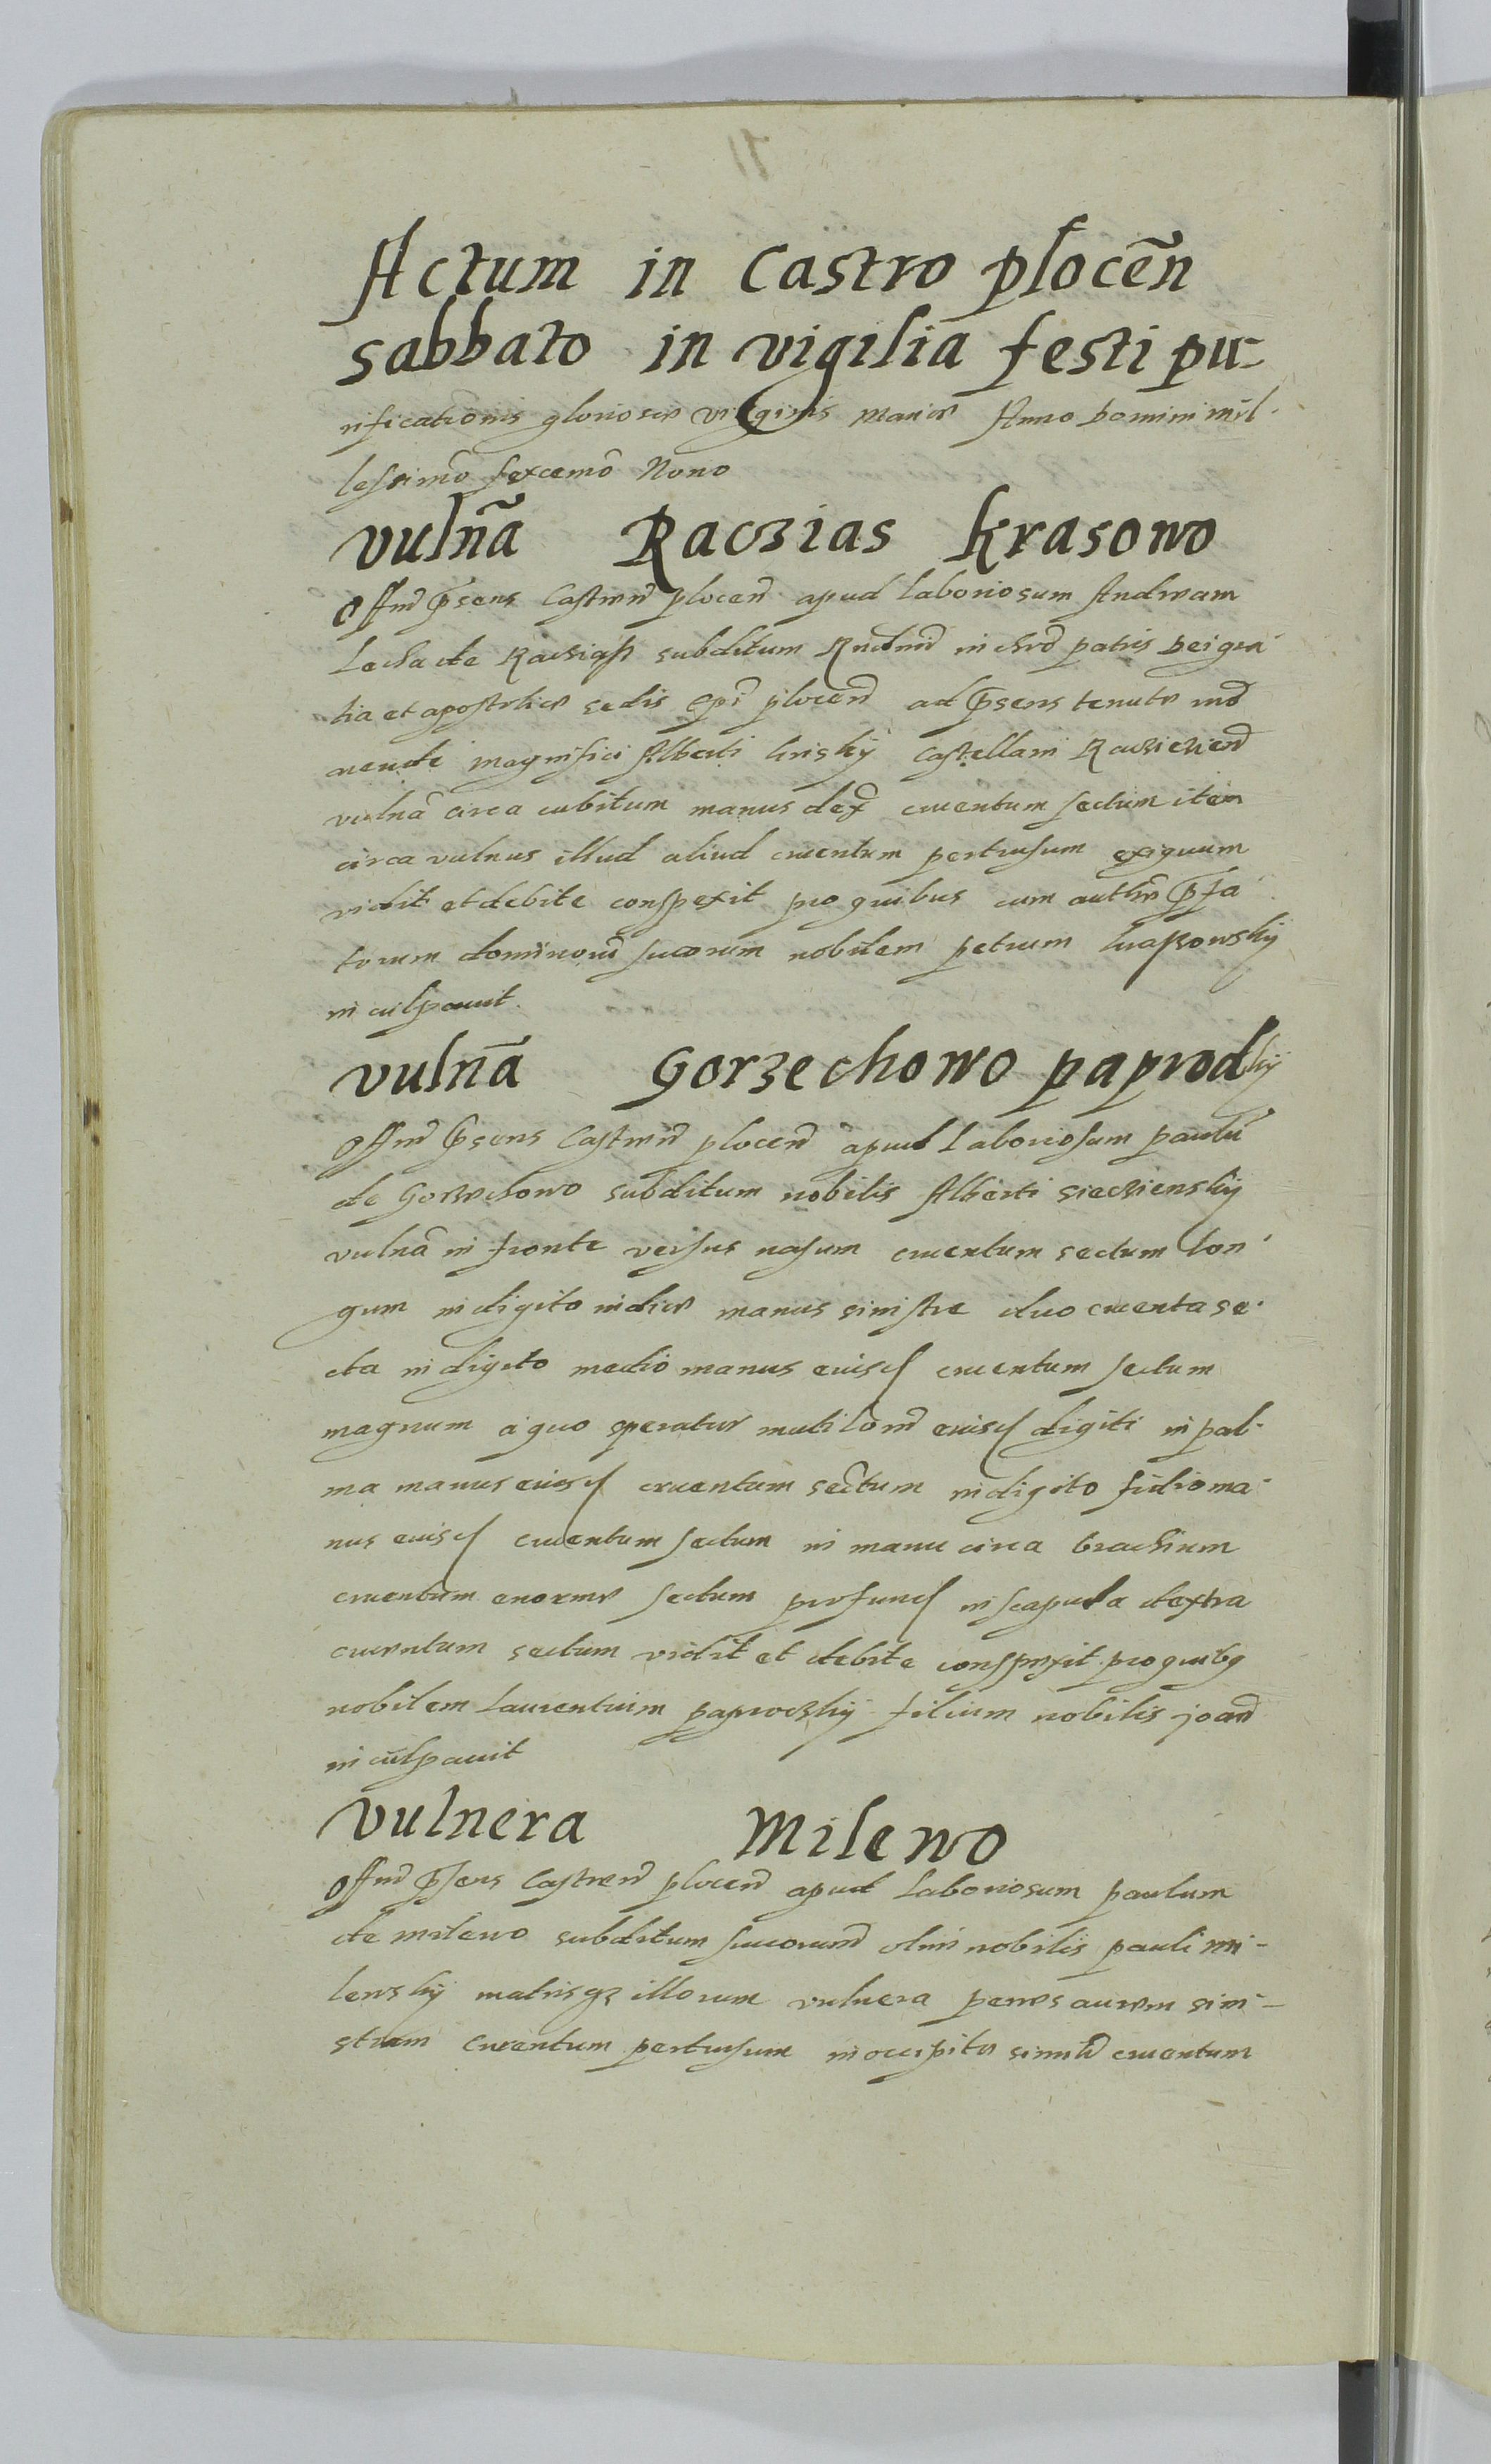 Actum in Castro plocen̄
sabbato in vigilia festi pu-
rificationis gloriosæ virginis Mariæ Anno Domini mil-
lesimo sexcemo Nono
vulnā Raczias Krasowo
Offnd psens Castren plocen apud Laboriosum Andream
de Racziasz subditum Rndmi in chro patris Dei gra-
tia et apostolicæ sedis Epi plocen ad psens tenutæ
magnifici Alberti Castellani Racziezien
vulnā circa cubitum manus dex cruentum sectum item
circa vulnus illud aliud cruentum pertusum exiguum
vidit et debite conspexit pro quibus cum authæ pfa-
torum dominorū suorum nobilem petrum
inculpavit.
vulnā Gorzechowo paprodky
Offnd psens Castren plocen apud Laboriosum paulū
de Gorzechowo subditum nobilis Alberti Siecziensky
vulnā in fronte versus nasum cruentum sectum lon-
gum in digito indice manus sinistre duo cruenta se-
cta in digito medio manus eiusd cruentum sectum
magnum a quo speratur mutilāōnē eiusd digiti in pal-
ma manus eiusd cruentum sectum in digito manus
eiusd cruentum sectum in manu circa brachium
cruentum enorme sectum profund in scapula dextra
cruentum sectum vidit et debite conspexit pro quibq
nobilem Laurentium paprocky filium nobilis joan
inculpavit
vulnera Milewo
Offnd psens Castren plocen apud Laboriosum paulum
de milewo subditum olim nobilis pauli mi-
lewsky matrisqz illorum vulnera penes aurem sini-
stram cruentum pertusum in occipite cruentum